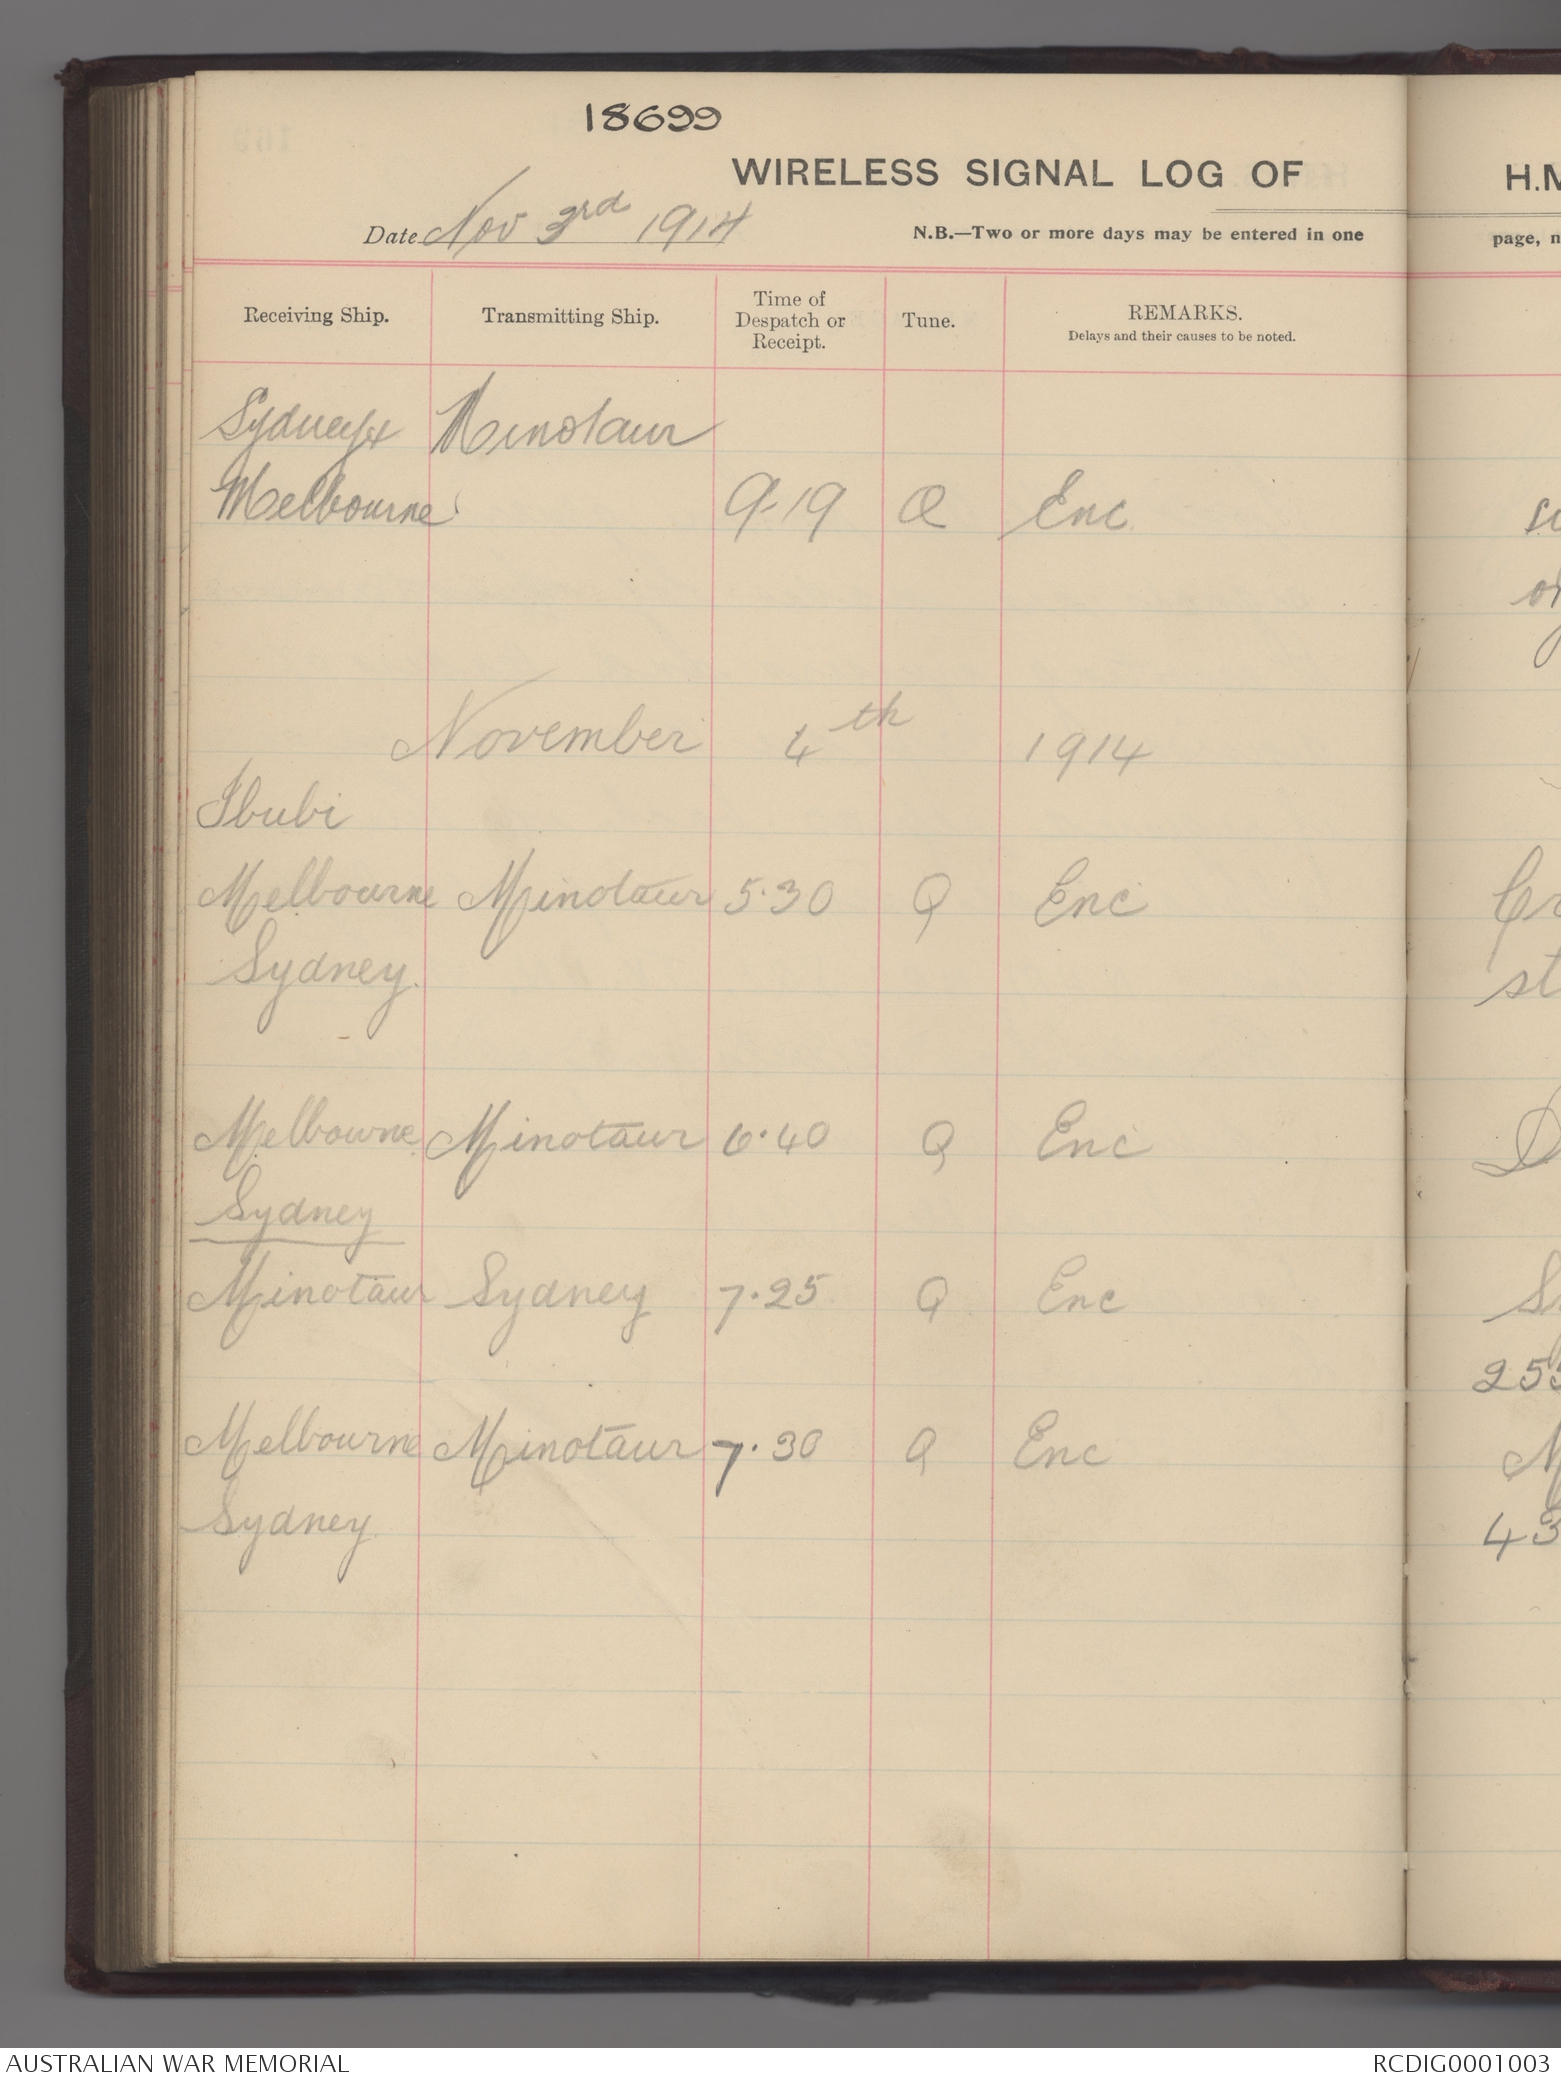 18699
WIRELESS SIGNAL LOG OF
H.M
Date Nov 3rd 1914
N.B.—Two or more days may be entered in one
page, n
Receiving Ship. Transmitting Ship. Time of Despatch or Receipt. Tune. REMARKS. Delays and their causes to be noted.
Sydney & Minotaur
Melbourne 9.19 Q Enc
November 4th 1914
Ibubi
Melbourne Minotaur 5.30 Q Enc
Sydney. st
Melbourne Minotaur 6.40 Q Enc D
Sydney
Minotaur Sydney 7.25 Q Enc
255
Melbourne Minotaur 7.30 Q Enc M
Sydney. 43
AUSTRALIAN WAR MEMORIAL
RCDIG0001003